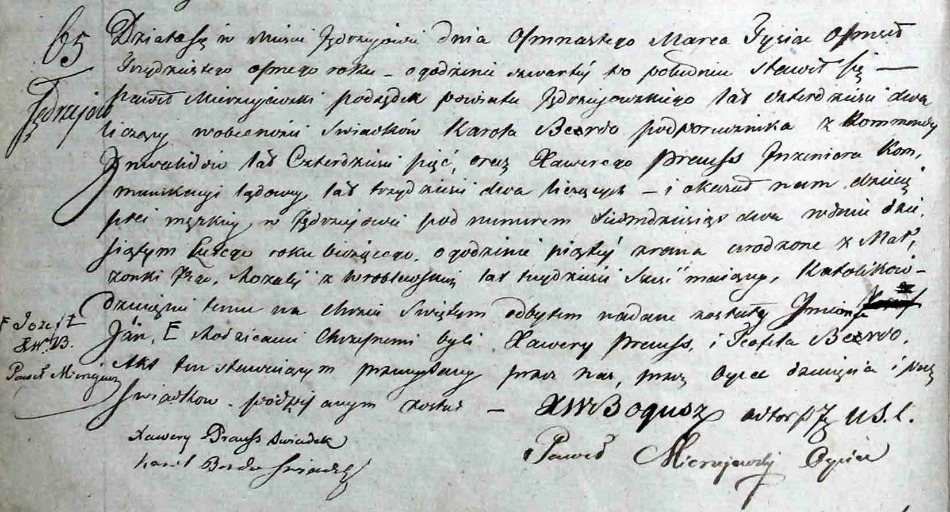 65
Jędrzejów
Działo się w Mieście Jędrzejowie dnia Osmnastego Marca Tysiąc Osmset
Trzydziestego osmego roku – o godzinie czwartej po południu stawił się —
Paweł Mierzejewski powiatu Jędrzejowskiego lat czterdzieści dwa
liczący w obecności Świadków Karola Berdo podporucznika z Kommendy
Inwalidów lat Czterdzieści pięć, oraz Xawerego Preuss Inżeniera Kom,
munikacyi lądowej, lat trzydzieści dwa liczących – i okazał nam dziecię
płci męzkiej, w Jędrzejowie pod numerem Siedmdziesiąt dwa w dniu
Lutego roku bieżącego, o godzinie piątej zrana urodzone z Mał,
żonki Jego, Rozalij z Wróblewskich lat trzydzieści mającej, Katolików –
dziecięciu temu na chrzcie Świętym odbytym nadane zostały Imiona
Jan, F Rodzicami Chrzestnemi byli Xawery Preuss, i Teofila Berdo.
Akt ten stawającym przeczytany przez nas, przez Oyca dziecięcia i przez
Świadków podpisanym został –
X W Bogusz U.S.C.
F Józef
XWB.
Paweł Mierzejewski
Xawery Preuss świadek
Karol Berdo Świadek
Paweł Mierzejewski Oyciec